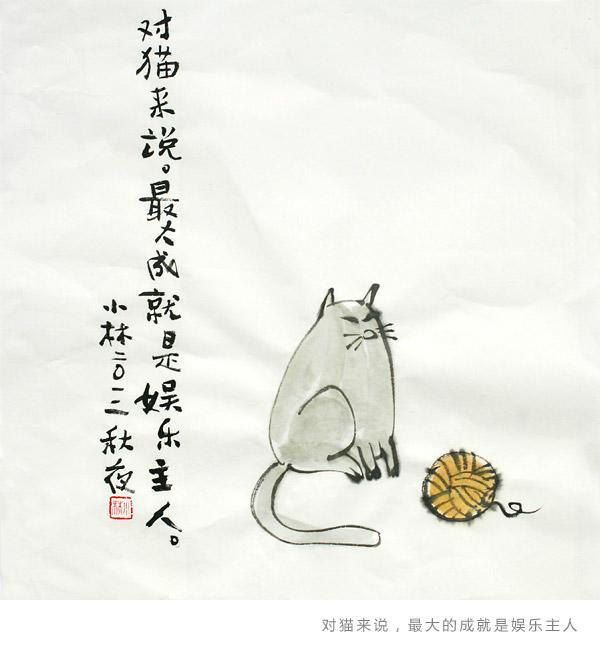 对猫来说。最大成就是娱乐主人。
小林二〇一三秋夜
对猫来说，最大的成就是娱乐主人